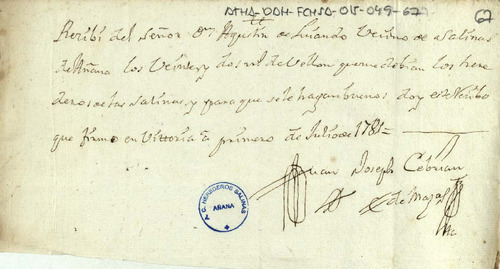 ATHA-DDH-FCHSA-015-049-67
67
Recibi del Señor Dn Agustin de Luando Vecino de Salinas
de Añana los Veinte y dos rs de Vellon que me debian los here
deros de las Salinas, y para que se le hagan buenos doy este Recibo
que firmo en Vittoria a primero de Julio de 1781=
Juan Joseph Cebrian
de Mazas
A.C. HEREDEROS SALINAS
AÑANA